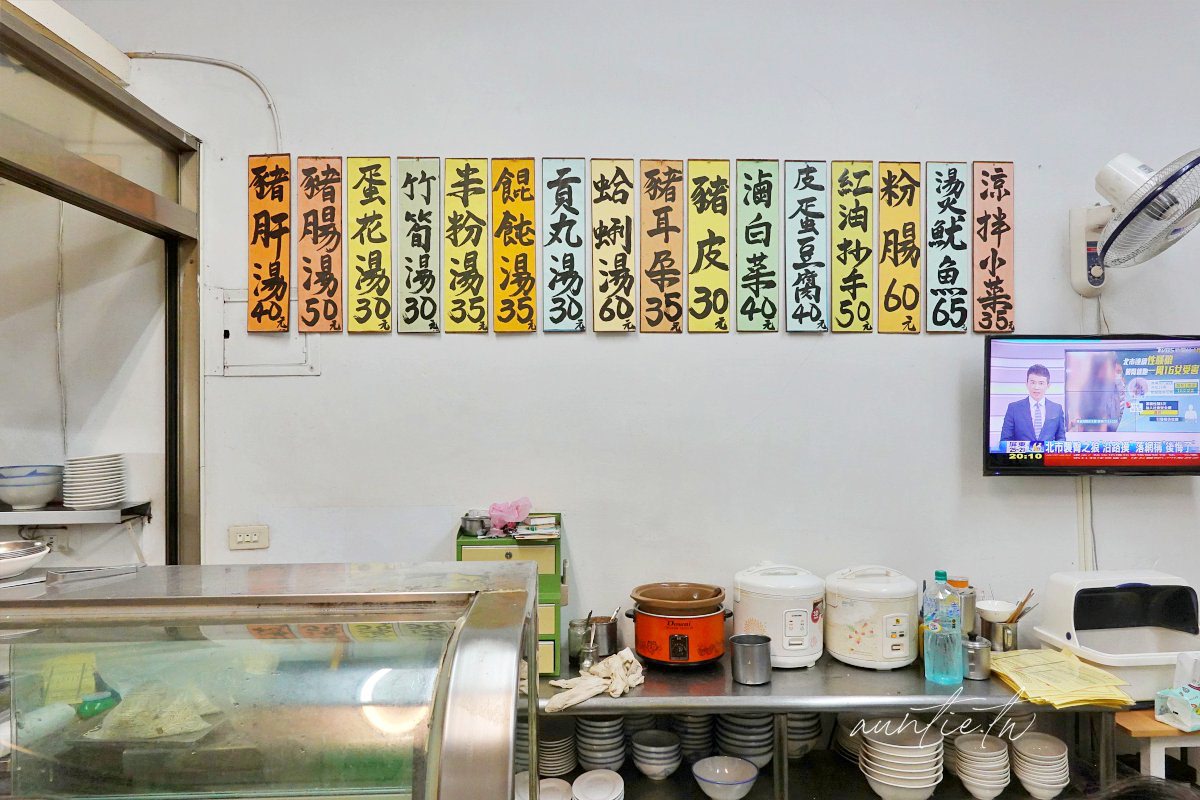 豬肝湯40元
豬腸湯50元
蛋花湯30元
竹筍湯30元
串粉湯35元
餛飩湯35元
貢丸湯30元
蛤蜊湯60元
豬耳朵35元
豬皮30元
滷白菜40元
皮蛋豆腐40元
紅油抄手50元
粉腸60元
燙魷魚65元
涼拌小菜35元
屏東
20:10
北市襲臀之狼 沿路摸 落網稱 後悔了
auntie.tw